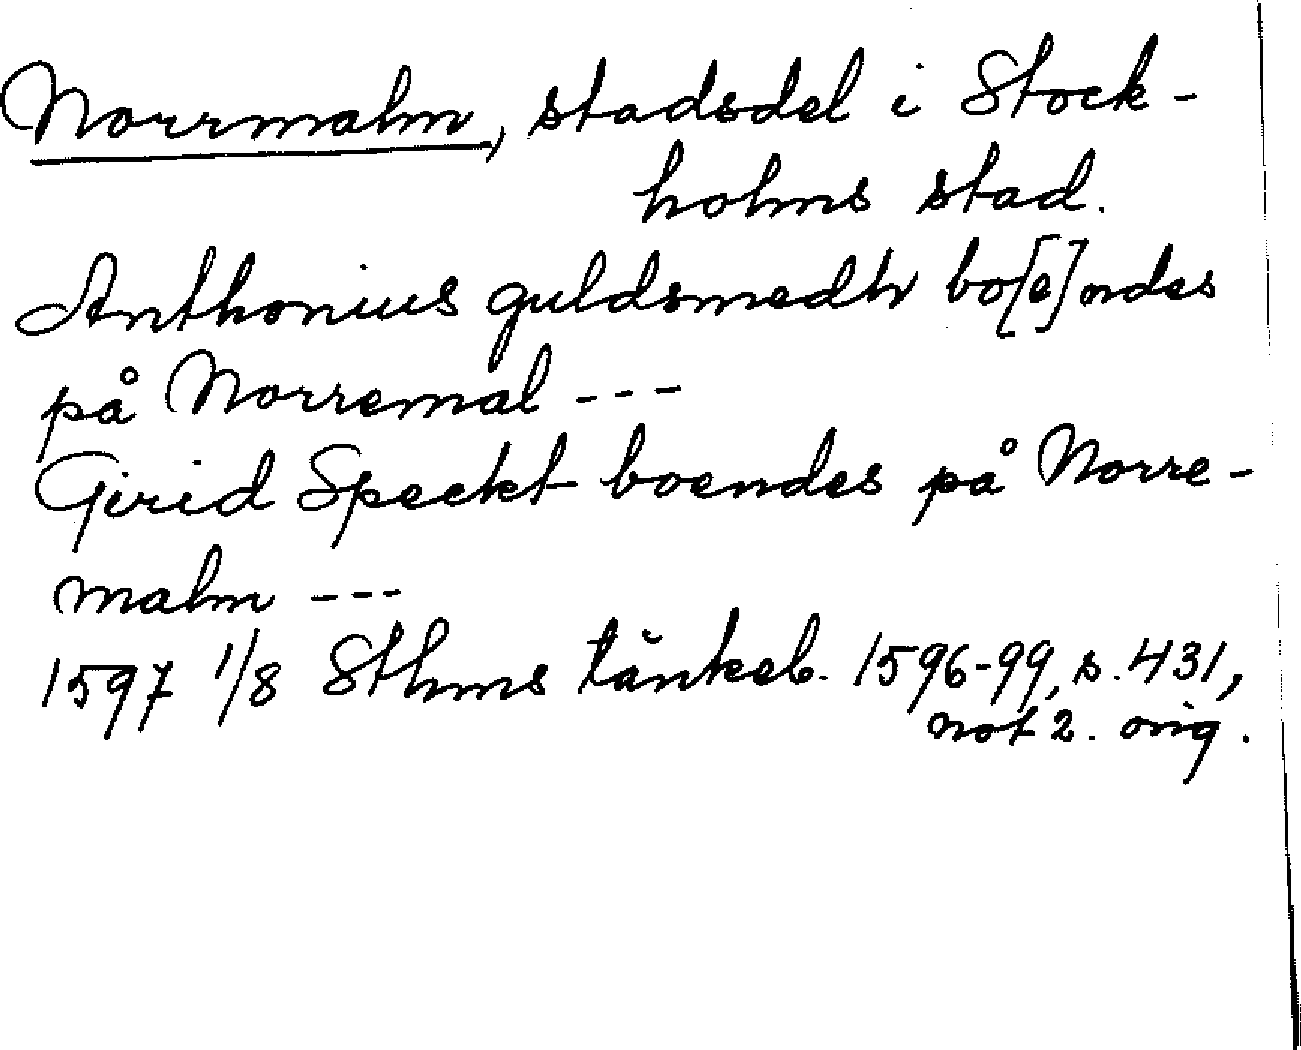 Norrmalm, stadsdel i Stock-
holms stad.
Anthonius guldsmedh bo[e]ndes
på Norremal ---
Girid Speckt boendes på Norre-
malm ---
1597 1/8 Sthms tänkeb. 1596-99, s. 431,
not 2. orig.